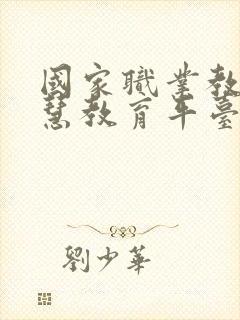 國家職業教
慧教育平臺
劉少華